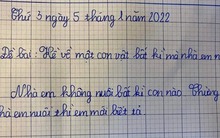 Thứ 3 ngày 5 tháng 1 năm 2022
Đề bài: Kể về một con vật bất kì mà nhà em n
Nhà em không nuôi bất kì con nào. Chừng
hà em nuôi thì em mới biết tả